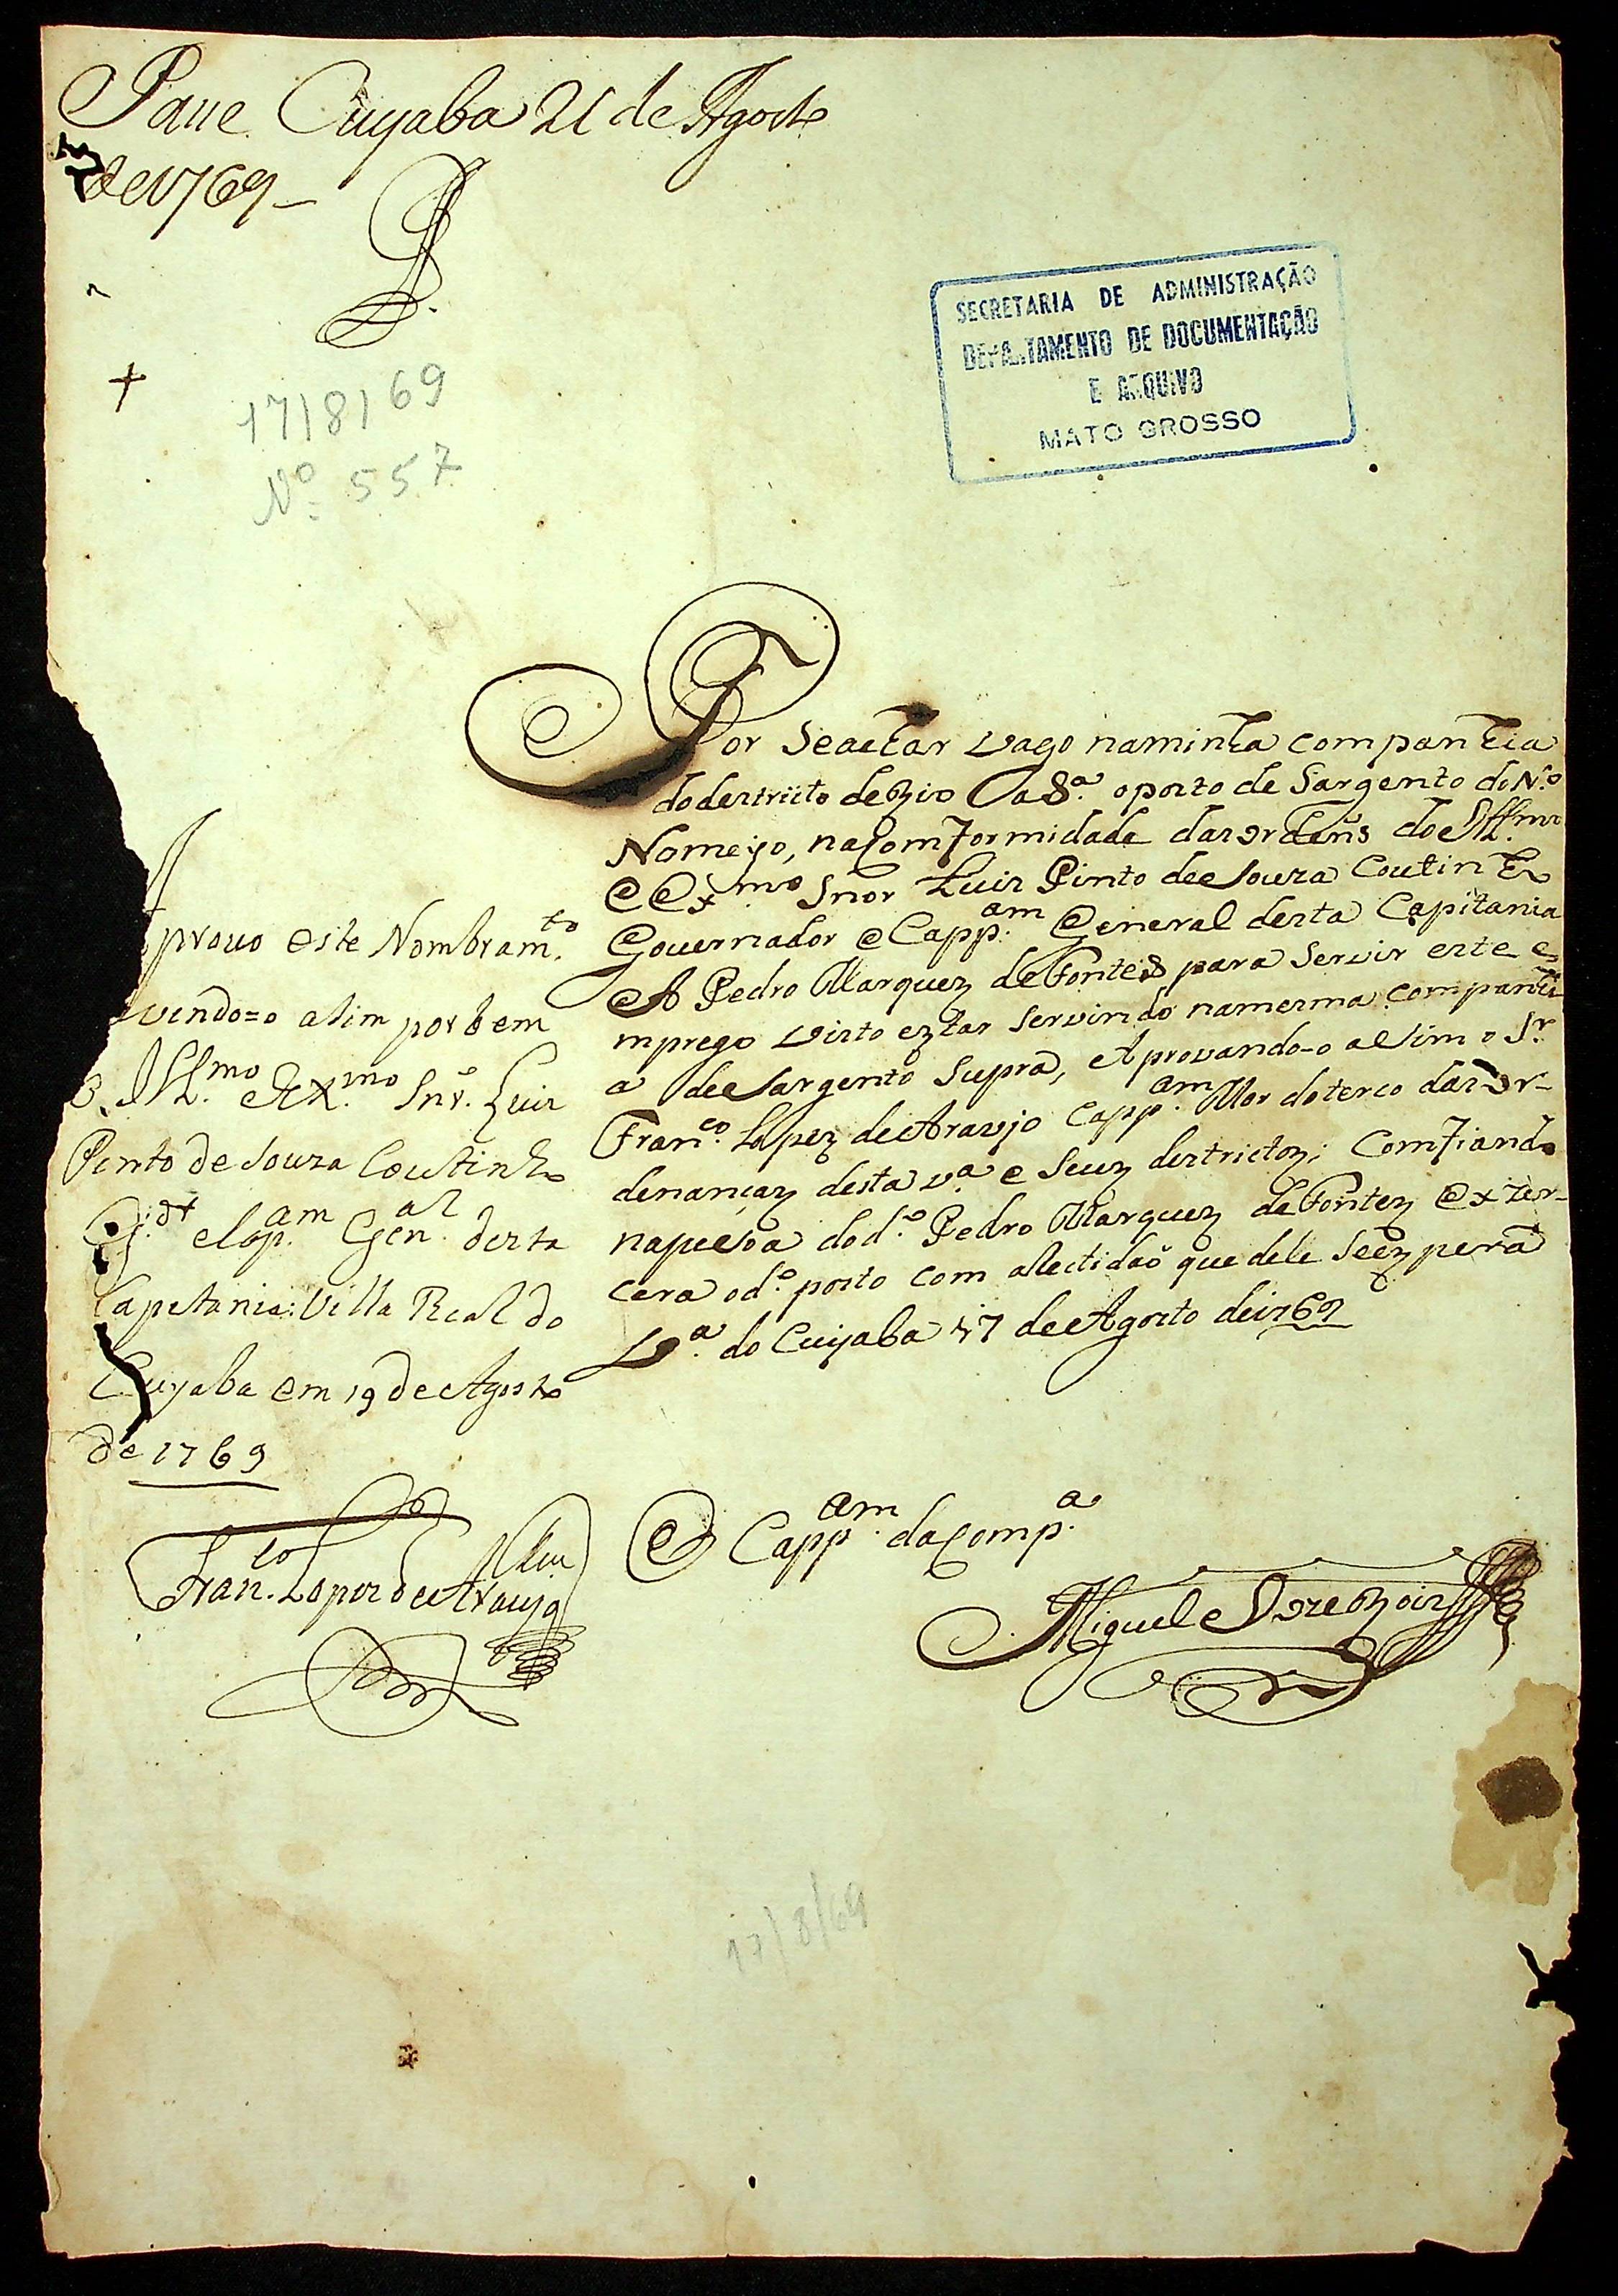 Passe Cuyaba 21 de Agosto
de 1769
17/8/69
Nº 557
SECRETARIA DE ADMINISTRAÇÃO
DEPARTAMENTO DE DOCUMENTAÇÃO
E ARQUIVO
MATO GROSSO
Por Seachar vago naminha companhia
dodestricto de oposto de Sargento do N.º
Nomeyo, naComformidade dasordeñs do Ill.mo
e Ex.mo Snor Luis Pinto deSouza Coutinho
Governador e Capp.am General desta Capitania
A Pedro Marquez deFontes para Servir este e
mprego visto estar Servindo namesma companhi
a deSargento Supra, Aprovando-o assim o S.r
Fran.co Lopez deAraujo Capp.am Mor doterco dasor-
denançaz desta v.a e Seuz destrictoz; Comfiando
napessoa dod.o Pedro Marquez deFontez Exzer-
cera od.o posto com aRectidaõ que dele Seezpera
V.a do Cuyaba 17 deAgosto de1769
provo este Nombram.to
vendo=o asim por bem
o Ill.mo eEx.mo Snr. Luis
Pinto de Souza Coutinho
G.or eCap.am Gen.al desta
Capetania: Villa Real do
Cuyaba em 19 deAgosto
de 1769
Fran.co Lopes deAraujo
O Capp.am daComp.a
Miguel
17/8/69